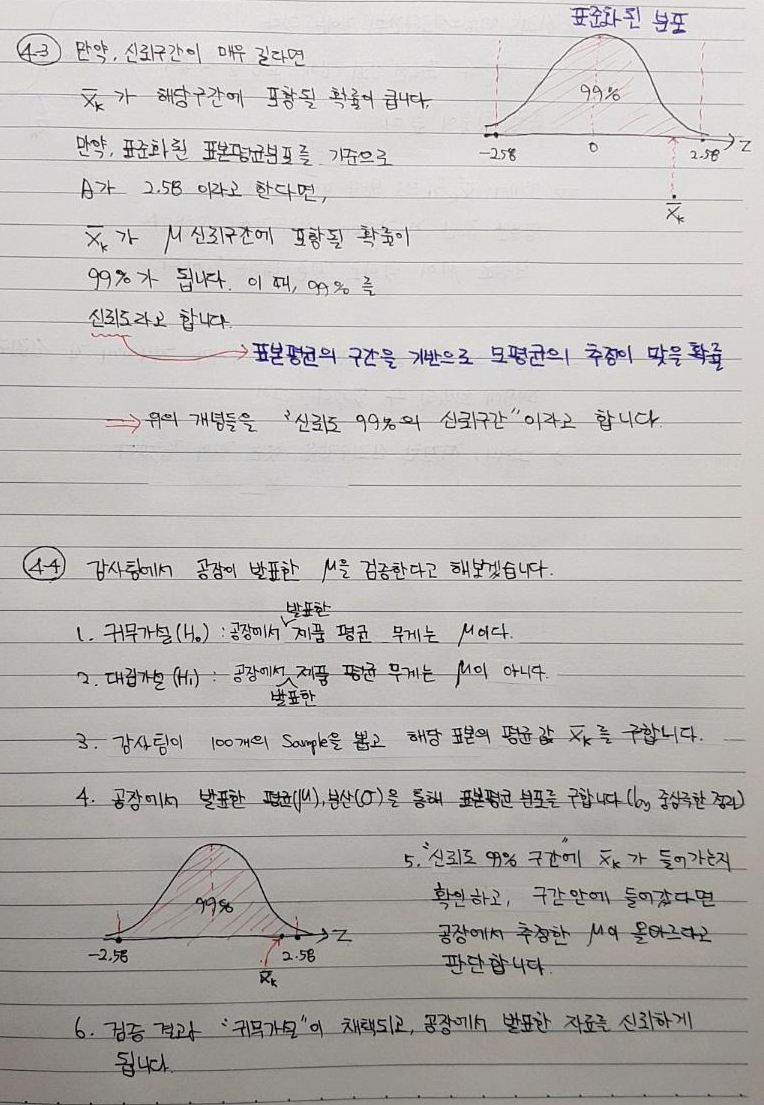 표준화된 분포
4-3 만약, 신뢰구간이 매우 길다면
X̄ₖ가 해당구간에 포함될 확률이 큽니다.
99%
-2.58 0 2.58 Z
X̄ₖ
만약, 표준화된 표본평균분포를 기준으로
A가 2.58 이라고 한다면,
X̄ₖ가 μ 신뢰구간에 포함될 확률이
99%가 됩니다. 이 때, 99%를
신뢰도라고 합니다.
→ 표본평균의 구간을 기반으로 모평균의 추정이 맞을 확률
⇒ 위의 개념들을 "신뢰도 99%의 신뢰구간"이라고 합니다.
4-4 감사팀에서 공장이 발표한 μ을 검증한다고 해보겠습니다.
발표한
1. 귀무가설(H₀) : 공장에서 제품 평균 무게는 μ이다.
2. 대립가설(H₁) : 공장에서 제품 평균 무게는 μ이 아니다.
발표한
3. 감사팀이 100개의 Sample을 뽑고 해당 표본의 평균값 X̄ₖ를 구합니다.
4. 공장에서 발표한 평균(μ), 분산(σ)을 통해 표본평균 분포를 구합니다 (by 중심극한 정리)
99%
-2.58 2.58 Z
X̄ₖ
5. "신뢰도 99% 구간"에 X̄ₖ가 들어가는지
확인하고, 구간안에 들어갔다면
공장에서 추정한 μ이 올바르다고
판단합니다.
6. 검증 결과 "귀무가설"이 채택되고, 공장에서 발표한 자료를 신뢰하게
됩니다.